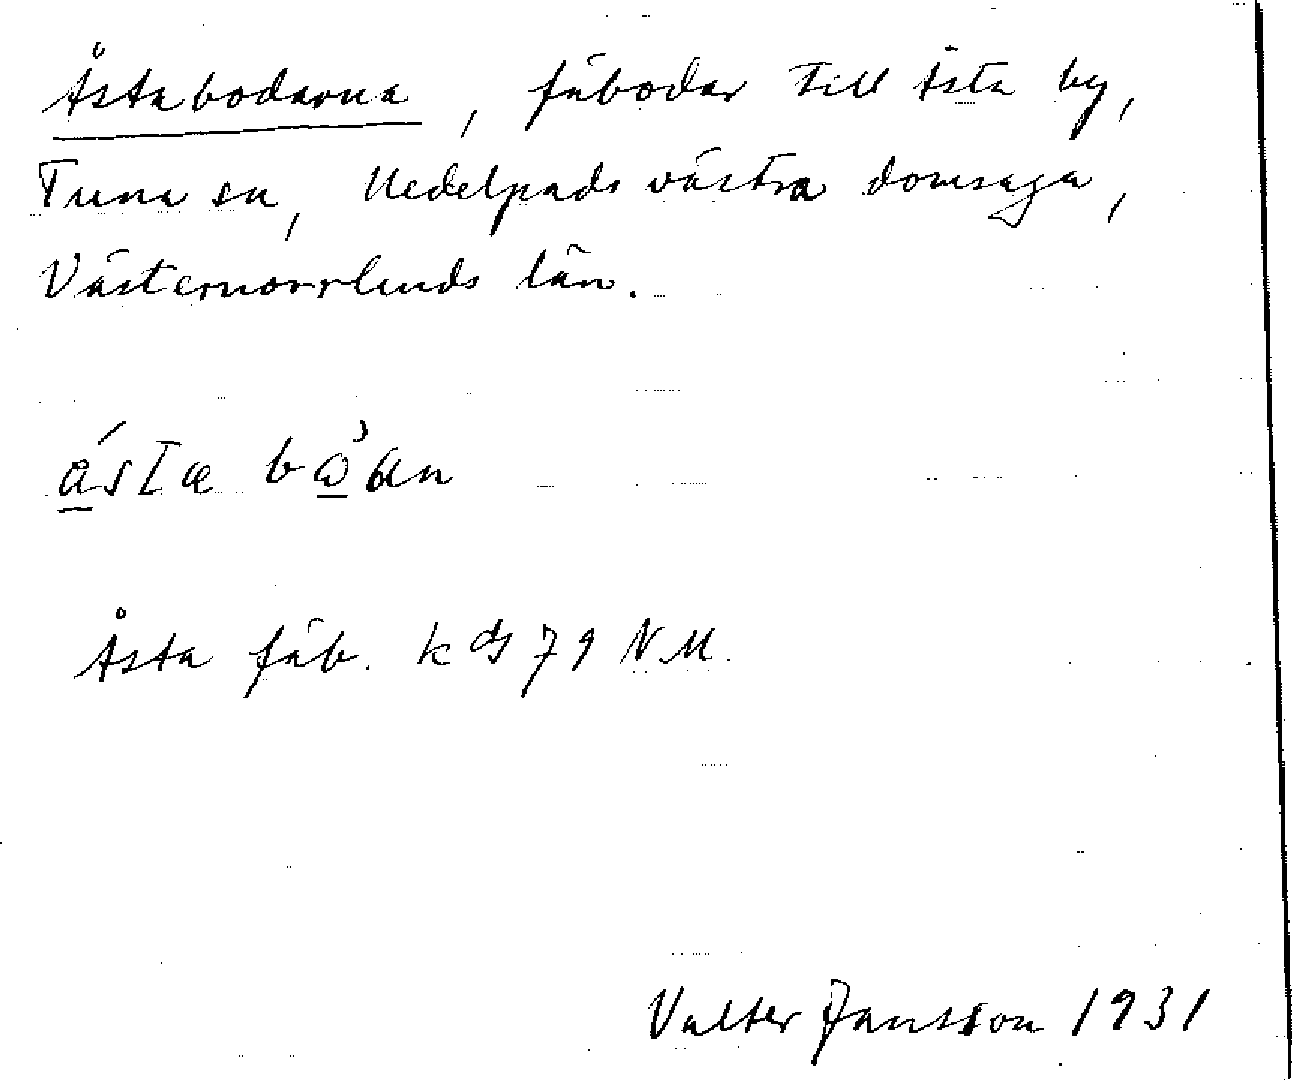 Åstabodarna, fäbodar till Åsta by,
Tuna sn, Medelpads västra domsaga,
Västernorrlands län.
ásta bɷ̀an
Åsta fäb. kds 79 NM.
Valter Jansson 1931